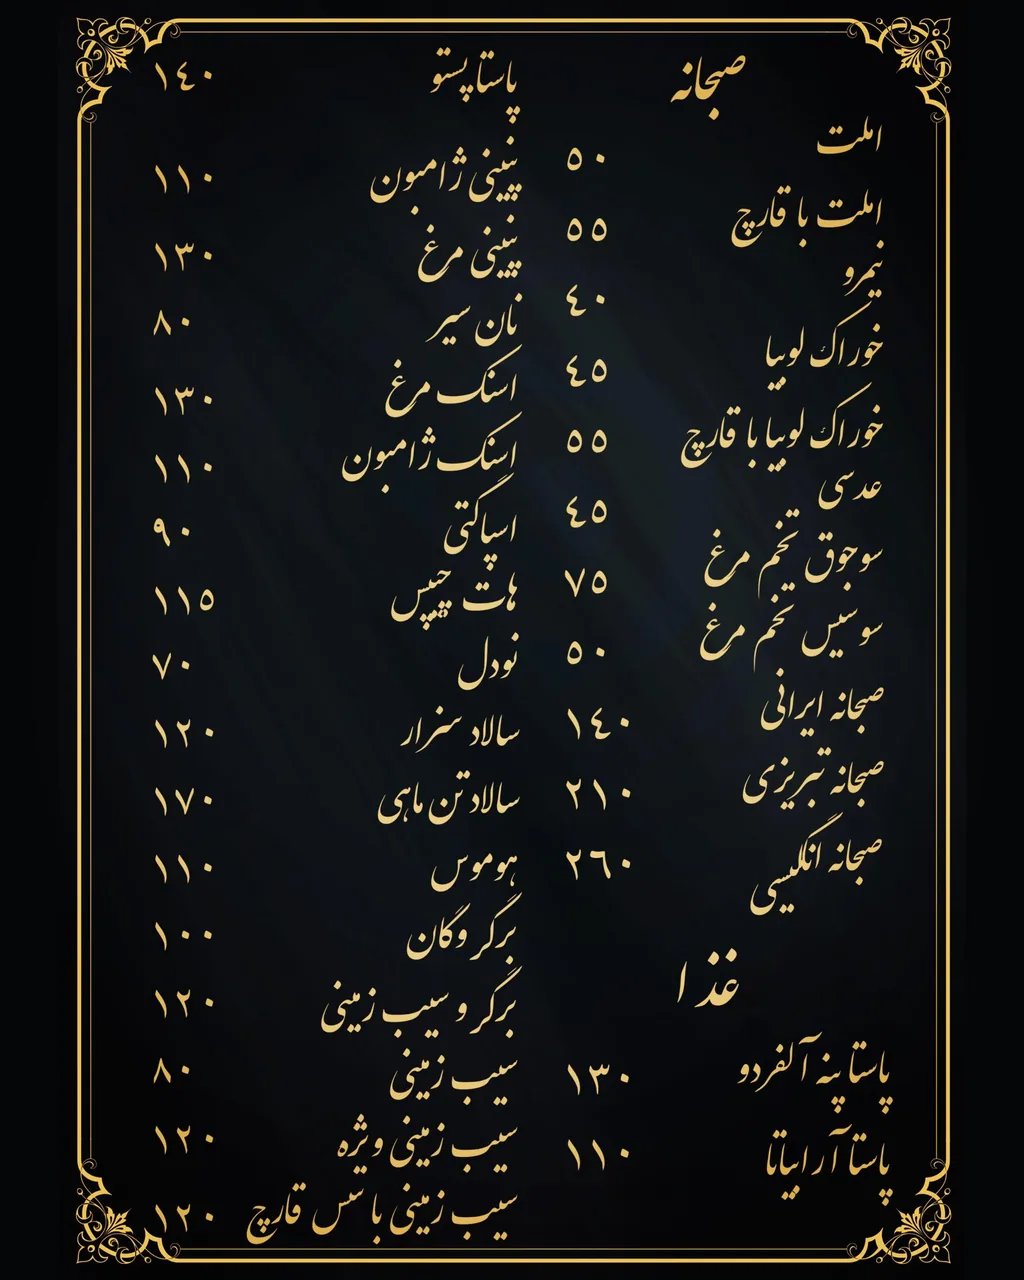 صبحانه
املت ۵۰
املت با قارچ ۵۵
نیمرو ٤۰
خوراک لوبیا ٤۵
خوراک لوبیا با قارچ ۵۵
عدسی ٤۵
سوجوق تخم مرغ ۷۵
سوسیس تخم مرغ ۵۰
صبحانه ایرانی ۱٤۰
صبحانه تبریزی ۲۱۰
صبحانه انگلیسی ۲٦۰
غذا
پاستا پنه آلفردو ۱۳۰
پاستا آرابیاتا ۱۱۰
پاستا پستو ۱٤۰
پنینی ژامبون ۱۱۰
پنینی مرغ ۱۳۰
نان سیر ۸۰
اسنک مرغ ۱۳۰
اسنک ژامبون ۱۱۰
اسپاگتی ۹۰
هات چیپس ۱۱۵
نودل ۷۰
سالاد سزار ۱۲۰
سالاد تن ماهی ۱۷۰
هوموس ۱۱۰
برگر وگان ۱۰۰
برگر و سیب زمینی ۱۲۰
سیب زمینی ۸۰
سیب زمینی ویژه ۱۲۰
سیب زمینی با سس قارچ ۱۲۰